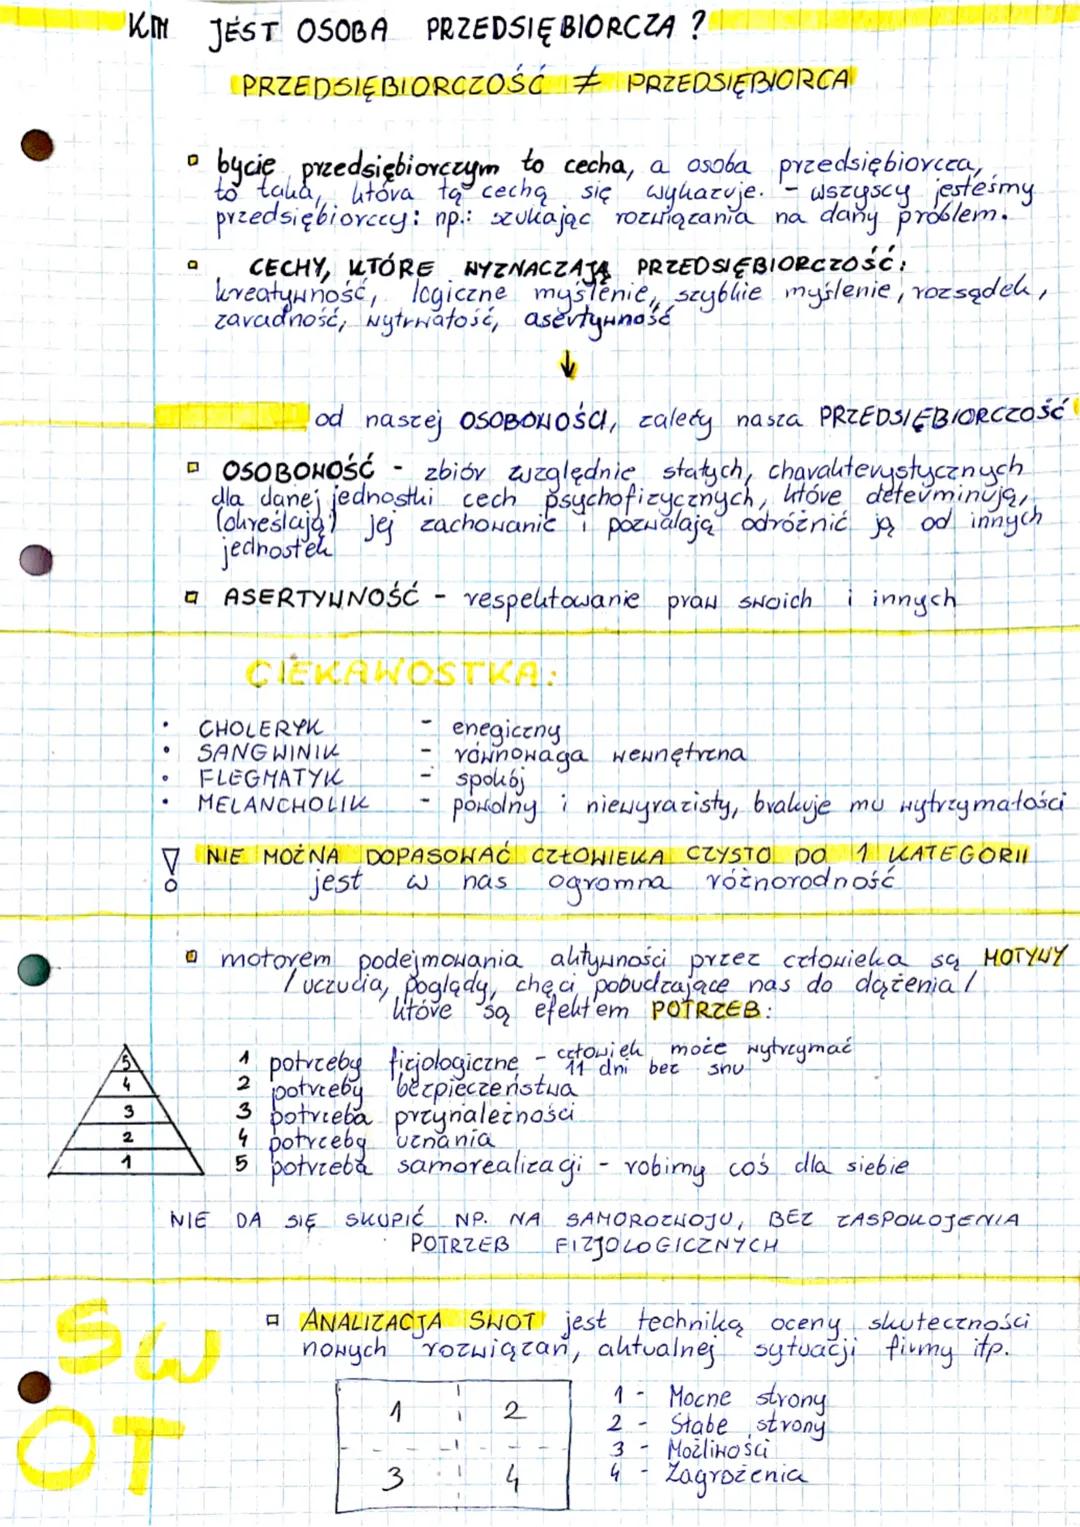 KIM JEST OSOBA PRZEDSIĘBIORCZA?
PRZEDSIĘBIORCZOŚĆ ≠ PRZEDSIĘBIORCA
bycie przedsiębiorczym to cecha, a osoba przedsiębiorcza,
to taka, która tą cechą się wykazuje. - wszyscy jesteśmy
przedsiębiorczy: np.: szukając rozwiązania na dany problem.
CECHY, KTÓRE WYZNACZAJĄ PRZEDSIĘBIORCZOŚĆ:
kreatywność, logiczne myślenie, szybkie myślenie, rozsądek,
zaradność, wytrwałość, asertywność
↓
od naszej OSOBOWOŚCI, zależy nasza PRZEDSIĘBIORCZOŚĆ
OSOBOWOŚĆ - zbiór względnie stałych, charakterystycznych
dla danej jednostki cech psychofizycznych, które determinują,
(określają) jej zachowanie i pozwalają odróżnić ją od innych
jednostek
ASERTYWNOŚĆ - respektowanie praw swoich i innych
CIEKAWOSTKA:
• CHOLERYK - enegiczny
• SANGWINIK - równowaga wewnętrzna
• FLEGMATYK - spokój
• MELANCHOLIK - powolny i niewyrazisty, brakuje mu wytrzymałości
NIE MOŻNA DOPASOWAĆ CZŁOWIEKA CZYSTO DO 1 KATEGORII
jest w nas ogromna różnorodność
motorem podejmowania aktywności przez człowieka są MOTYWY
/uczucia, poglądy, chęci pobudzające nas do dążenia/
które są efektem POTRZEB:
5
4
3
2
1
1 potrzeby fizjologiczne - człowiek może wytrzymać
11 dni bez snu
2 potrzeby bezpieczeństwa
3 potrzeba przynależności
4 potrzeby uznania
5 potrzeba samorealizacji - robimy coś dla siebie
NIE DA SIĘ SKUPIĆ NP. NA SAMOROZWOJU, BEZ ZASPOKOJENIA
POTRZEB FIZJOLOGICZNYCH
SW
OT
ANALIZACJA SWOT jest techniką oceny skuteczności
nowych rozwiązań, aktualnej sytuacji firmy itp.
1 2
3 4
1 - Mocne strony
2 - Słabe strony
3 - Możliwości
4 - Zagrożenia